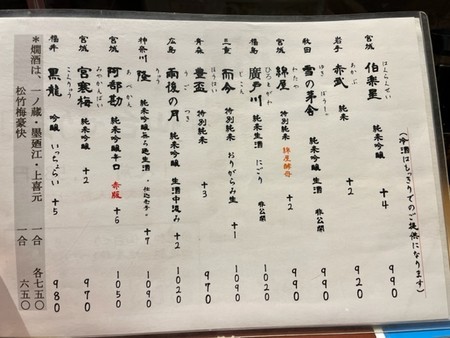 (冷酒はもっきりでのご提供になります)
宮城 伯楽星 はくらくせい 純米吟醸 +4 990
岩手 赤武 あかぶ 純米 +2 920
秋田 雪の茅舎 ゆきのぼうしゃ 純米吟醸 非公開 990
宮城 綿屋 わたや 純米吟醸 綿屋酵母 +2 990
福島 廣戸川 ひろとがわ 純米生酒 にごり 非公開 1020
三重 而今 じこん 特別純米 おりがらみ生 +1 1090
青森 豊盃 ほうはい 特別純米 +3 970
広島 雨後の月 うごのつき 純米吟醸 生酒中汲み +2 1020
神奈川 隆 りゅう 純米吟醸 +7 1090
宮城 阿部勘 あべかん 純米吟醸辛口 赤版 +6 1050
宮城 宮寒梅 みやかんばい 純米吟醸 +2 970
福井 黒龍 こくりゅう 吟醸 いっちょらい +5 980
*燗酒は、一ノ蔵・墨廼江・上喜元 一合 各七五〇
松竹梅豪快 一合 六五〇